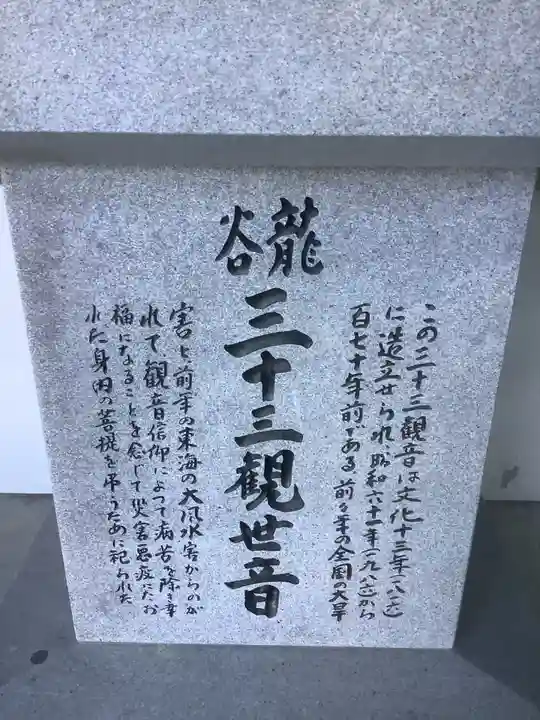 この三十三観音は文化十三年(一八一六)
に造立せられ昭和六十一年(一九八六)から
百七十年前である 前々年の全国の大旱
龍谷
三十三観世音
害と前年の東海の大風水害からのが
れて観音信仰によって病苦を除き幸
福になることを念じて災害悪疫にたお
れた身内の菩提を弔うために祀られた